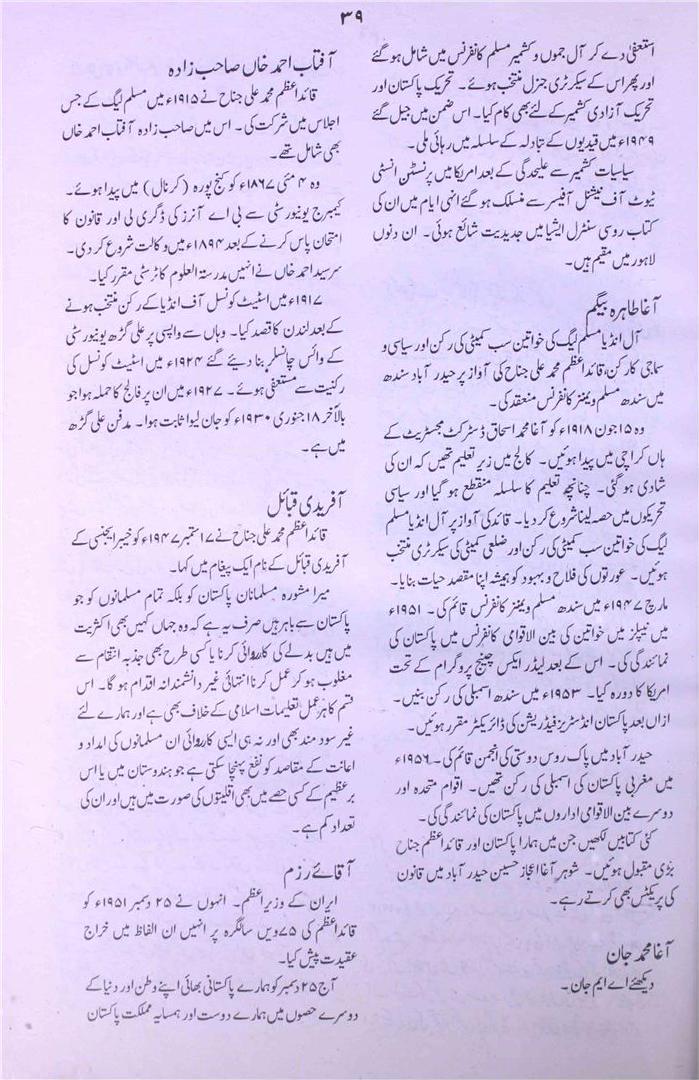 ۳۹
استعفیٰ دے کر آل جموں و کشمیر مسلم کانفرنس میں شامل ہو گئے
اور پھر اس کے سیکرٹری جنرل منتخب ہوئے۔ تحریک پاکستان اور
تحریک آزادی کشمیر کے لئے بھی کام کیا۔ اس ضمن میں جیل گئے
۱۹۴۹ء میں قیدیوں کے تبادلہ کے سلسلہ میں رہائی ملی۔
سیاسیات کشمیر سے علیحدگی کے بعد امریکا میں پرنسٹن انسٹی
ٹیوٹ آف نیشنل آفیسر سے منسلک ہو گئے انہی ایام میں ان کی
کتاب روسی سنٹرل ایشیا میں جدیدیت شائع ہوئی۔ ان دنوں
لاہور میں مقیم ہیں۔
آغا طاہرہ بیگم
آل انڈیا مسلم لیگ کی خواتین سب کمیٹی کی رکن اور سیاسی و
سماجی کارکن، قائداعظم محمد علی جناح کی آواز پر حیدر آباد سندھ
میں سندھ مسلم ویمنز کانفرنس منعقد کی۔
وہ ۱۵ جون ۱۹۱۸ء کو آغا محمد اسحاق ڈسٹرکٹ مجسٹریٹ کے
ہاں کراچی میں پیدا ہوئیں۔ کالج میں زیر تعلیم تھیں کہ ان کی
شادی ہو گئی۔ چنانچہ تعلیم کا سلسلہ منقطع ہو گیا اور سیاسی
تحریکوں میں حصہ لینا شروع کر دیا۔ قائد کی آواز پر آل انڈیا مسلم
لیگ کی خواتین سب کمیٹی کی رکن اور ضلعی کمیٹی کی سیکرٹری منتخب
ہوئیں۔ عورتوں کی فلاح و بہبود کو ہمیشہ اپنا مقصد حیات بنایا۔
مارچ ۱۹۴۷ء میں سندھ مسلم ویمنز کانفرنس قائم کی۔ ۱۹۵۱ء
میں نیپلز میں خواتین کی بین الاقوامی کانفرنس میں پاکستان کی
نمائندگی کی۔ اس کے بعد لیڈر ایکس چینج پروگرام کے تحت
امریکا کا دورہ کیا۔ ۱۹۵۳ء میں سندھ اسمبلی کی رکن بنیں۔
ازاں بعد پاکستان انڈسٹریز فیڈریشن کی ڈائریکٹر مقرر ہوئیں۔
حیدر آباد میں پاک روس دوستی کی انجمن قائم کی۔ ۱۹۵۶ء
میں مغربی پاکستان کی اسمبلی کی رکن تھیں۔ اقوام متحدہ اور
دوسرے بین الاقوامی اداروں میں پاکستان کی نمائندگی کی۔
کئی کتابیں لکھیں جن میں ہمارا پاکستان اور قائداعظم جناح
بڑی مقبول ہوئیں۔ شوہر آغا اعجاز حسین حیدر آباد میں قانون
کی پریکٹس بھی کرتے رہے۔
آغا محمد جان
دیکھئے اے ایم جان۔
آفتاب احمد خاں صاحب زادہ
قائداعظم محمد علی جناح نے ۱۹۱۵ء میں مسلم لیگ کے جس
اجلاس میں شرکت کی۔ اس میں صاحب زادہ آفتاب احمد خاں
بھی شامل تھے۔
وہ ۴ مئی ۱۸۶۷ء کو کنج پورہ (کرنال) میں پیدا ہوئے۔
کیمبرج یونیورسٹی سے بی اے آنرز کی ڈگری لی اور قانون کا
امتحان پاس کرنے کے بعد ۱۸۹۴ء میں وکالت شروع کر دی۔
سر سید احمد خاں نے انہیں مدرستہ العلوم کا ٹرسٹی مقرر کیا۔
۱۹۱۷ء میں اسٹیٹ کونسل آف انڈیا کے رکن منتخب ہونے
کے بعد لندن کا قصد کیا۔ وہاں سے واپسی پر علی گڑھ یونیورسٹی
کے وائس چانسلر بنا دیئے گئے ۱۹۲۴ء میں اسٹیٹ کونسل کی
رکنیت سے مستعفی ہوئے۔ ۱۹۲۷ء میں ان پر فالج کا حملہ ہوا جو
بالآخر ۱۸ جنوری ۱۹۳۰ء کو جان لیوا ثابت ہوا۔ مدفن علی گڑھ
میں ہے۔
آفریدی قبائل
قائداعظم محمد علی جناح نے ۱۷ ستمبر ۱۹۴۷ء کو خیبر ایجنسی کے
آفریدی قبائل کے نام ایک پیغام میں کہا۔
میرا مشورہ مسلمانان پاکستان کو بلکہ تمام مسلمانوں کو جو
پاکستان سے باہر ہیں صرف یہ ہے کہ وہ جہاں کہیں بھی اکثریت
میں ہیں بدلے کی کارروائی کرنا یا کسی طرح بھی جذبہ انتقام سے
مغلوب ہو کر عمل کرنا انتہائی غیر دانشمندانہ اقدام ہو گا۔ اس
قسم کا ہر عمل تعلیمات اسلامی کے خلاف بھی ہے اور ہمارے لئے
غیر سود مند بھی اور نہ ہی ایسی کارروائی ان مسلمانوں کی امداد و
اعانت کے مقاصد کو نفع پہنچا سکتی ہے جو ہندوستان میں یا اس
برعظیم کے کسی حصے میں بھی اقلیتوں کی صورت میں ہیں اور ان کی
تعداد کم ہے۔
آقائے رزم
ایران کے وزیراعظم۔ انہوں نے ۲۵ دسمبر ۱۹۵۱ء کو
قائداعظم کی ۷۵ویں سالگرہ پر انہیں ان الفاظ میں خراج
عقیدت پیش کیا۔
آج ۲۵ دسمبر کو ہمارے پاکستانی بھائی اپنے وطن اور دنیا کے
دوسرے حصوں میں ہمارے دوست اور ہمسایہ مملکت پاکستان